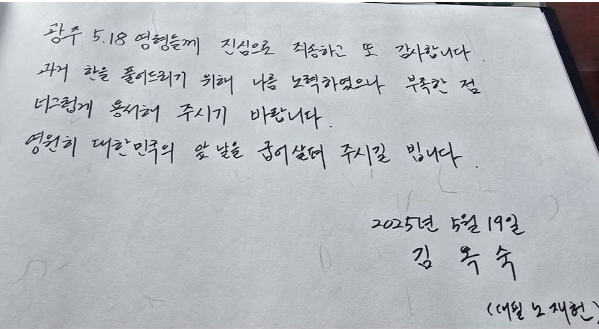 광주 5.18 영령들께 진심으로 죄송하고 또 감사합니다.
과거 한을 풀어드리기 위해 나름 노력하였으나 부족한 점
너그럽게 용서해 주시기 바랍니다.
영원히 대한민국의 앞날을 굽어살펴 주시길 빕니다.
2025년 5월 19일
김옥숙
(대필 노재헌)